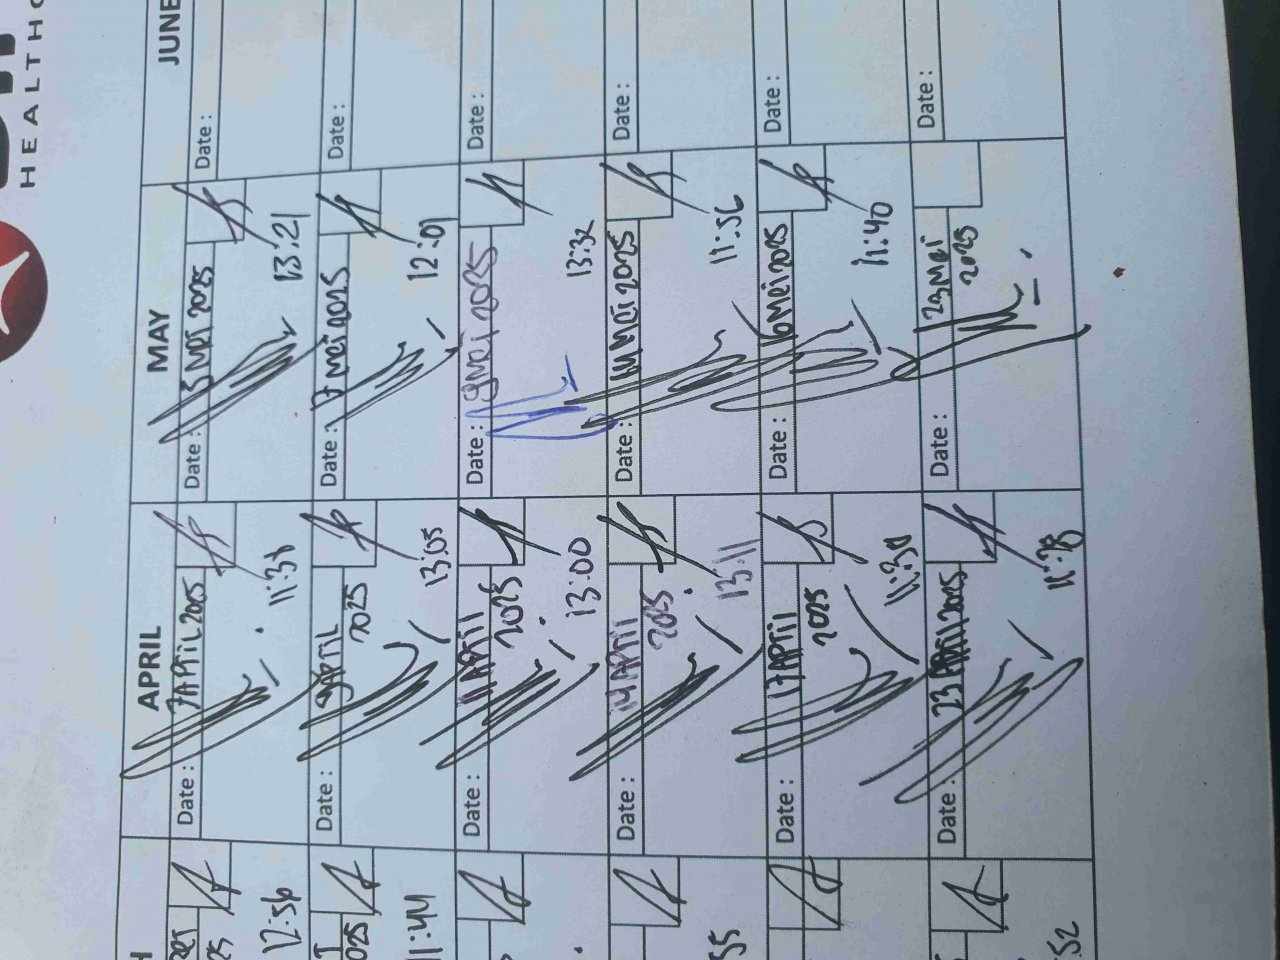 HEALTHC
APRIL
MAY
JUNE
12:56
Date : 7 APRIL 2025
11:38
Date : 5 Mei 2025
13:21
Date :
2025
11:44
Date : 9 APRIL
2025
13:05
Date : 7 Mei 2025
12:01
Date :
Date : 11 APRIL
2025
13:00
Date : 9 Mei 2025
13:32
Date :
55
Date : 14 APRIL
2025
13:11
Date : 14 Mei 2025
11:56
Date :
Date : 17 APRIL
2025
11:30
Date : 16 Mei 2025
11:40
Date :
:52
Date : 23 APRIL 2025
Date : 23 Mei
2025
Date :